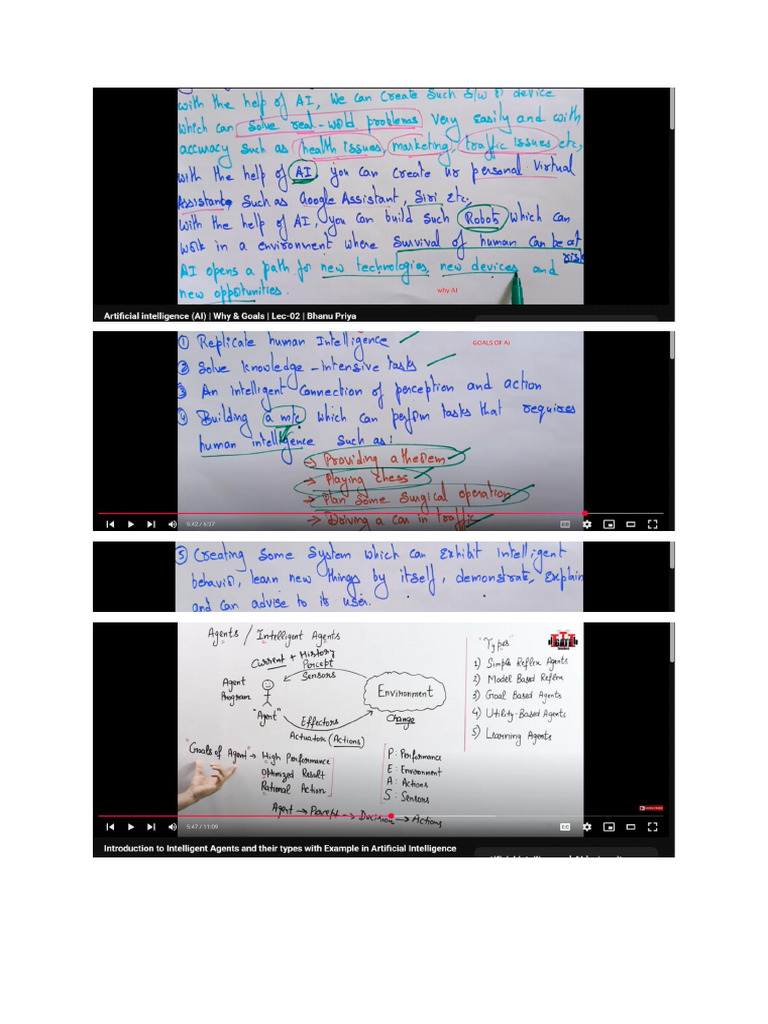 with the help of AI, We can create such s/w or device
which can solve real-wold problems very easily and with
accuracy such as health issues, marketing, traffic issues etc,
with the help of AI, you can create ur personal virtual
Assistance such as Google Assistant, Siri etc.
With the help of AI, you can build such Robots which can
work in a environment where survival of human can be at
risk
AI opens a path for new technologies, new devices and
new opportunities.
why AI
Artificial intelligence (AI) | Why & Goals | Lec-02 | Bhanu Priya
① Replicate human Intelligence
GOALS OF AI
② Solve knowledge-intensive tasks
③ An intelligent connection of perception and action
④ Building a m/c which can perform tasks that requires
human intelligence such as:
→ Providing a theorem
→ Playing chess
→ Plan some surgical operation
→ Driving a car in traffic
5:42 / 6:37
⑤ Creating some system which can exhibit intelligent
behavior, learn new things by itself, demonstrate, explain
and can advise to its user.
Agents / Intelligent Agents
Current + History
Percept
Sensors
Agent
Program
"Agent"
Environment
Change
Effectors
Actuator (Actions)
"Types"
GATE
1) Simple Reflex Agents
2) Model Based Reflex
3) Goal Based Agents
4) Utility-Based Agents
5) Learning Agents
"Goals of Agent" → High Performance
Optimized Result
Rational Action
P: Performance
E: Environment
A: Actions
S: Sensors
Agent → Percept → Decision → Actions
5:47 / 11:09
Introduction to Intelligent Agents and their types with Example in Artificial Intelligence